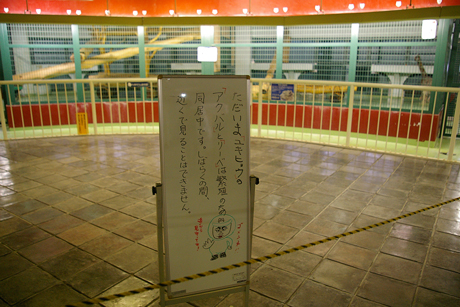 ただいま、ユキヒョウの
アクバルとリーベは繁殖のため
同居中です。しばらくの間、
近くで見ることはできません。